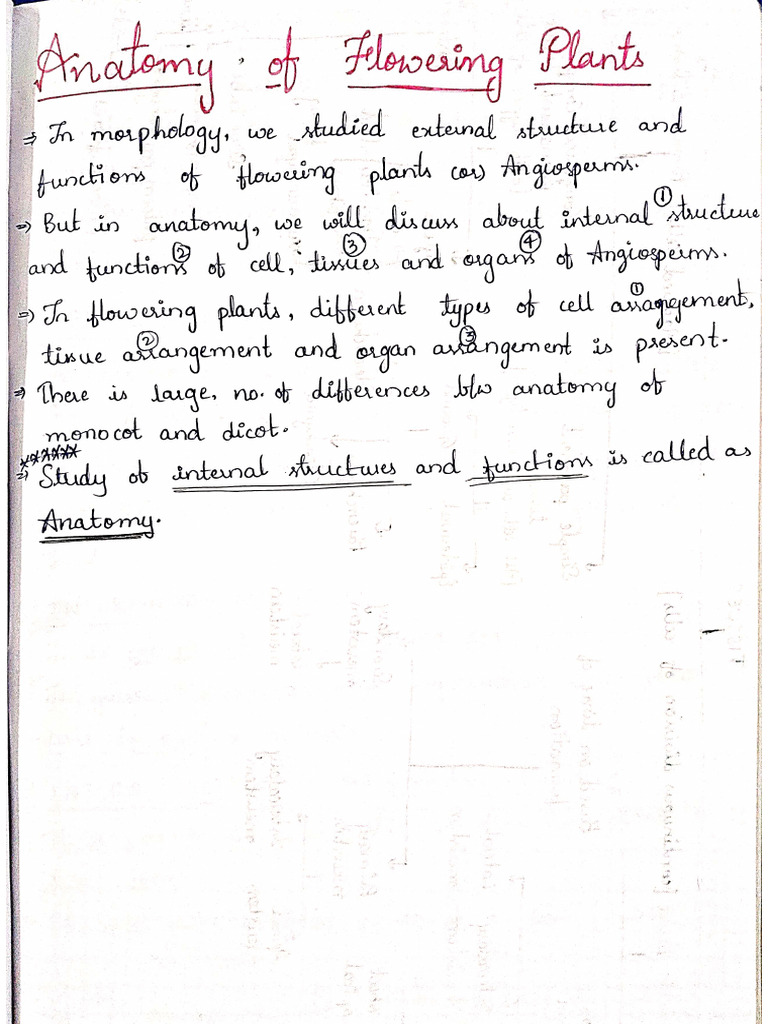 Anatomy of Flowering Plants
⇒ In morphology, we studied external structure and
functions of flowering plants (or) Angiosperms.
⇒ But in anatomy, we will discuss about internal ① structure
and functions ② of cell, tissues ③ and organs ④ of Angiosperms.
⇒ In flowering plants, different types of cell arrangement ①,
tissue arrangement ② and organ arrangement ③ is present.
⇒ There is large, no. of differences b/w anatomy of
monocot and dicot.
*****
⇒ Study of internal structures and functions is called as
Anatomy.